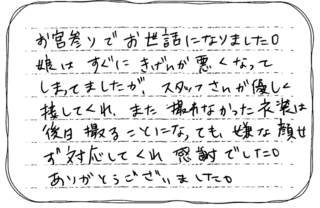 お宮参りでお世話になりました。
娘はすぐにきげんが悪くなって
しまってましたが、スタッフさんが優しく
接してくれ、また撮れなかった衣装は
後日撮ることになっても、嫌な顔せ
ず対応してくれ感謝でした。
ありがとうございました。